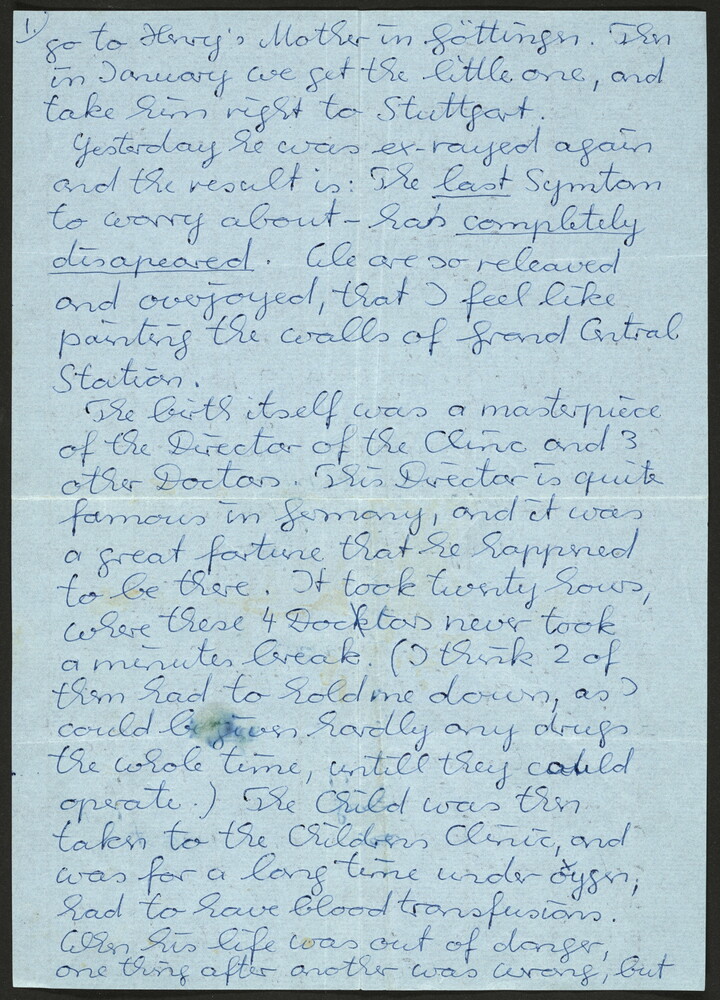 1)
go to Henry's Mother in Göttingen. Then
in January we get the little one, and
take him right to Stuttgart.
Yesterday he was ex-rayed again
and the result is: The last Symtom
to worry about - has completely
disapeared. We are so releaved
and overjoyed, that I feel like
painting the walls of Grand Central
Station.
The birth itself was a masterpiece
of the Director of the Clinic and 3
other Doctors. This Director is quite
famous in Germany, and it was
a great fortune that he happened
to be there. It took twenty hours,
where these 4 Docktors never took
a minutes break. (I think 2 of
them had to hold me down, as I
could be given hardly any drugs
the whole time, untill they could
operate.) The Child was then
taken to the Childrens Clinic, and
was for a long time under oxygen,
had to have blood transfusions.
When his life was out of danger,
one thing after another was wrong, but